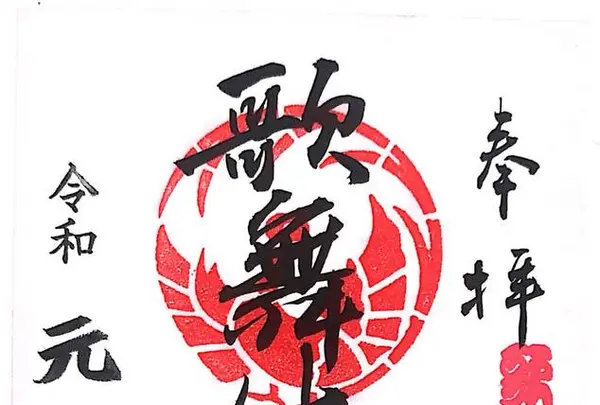 奉拝
歌舞
令和元